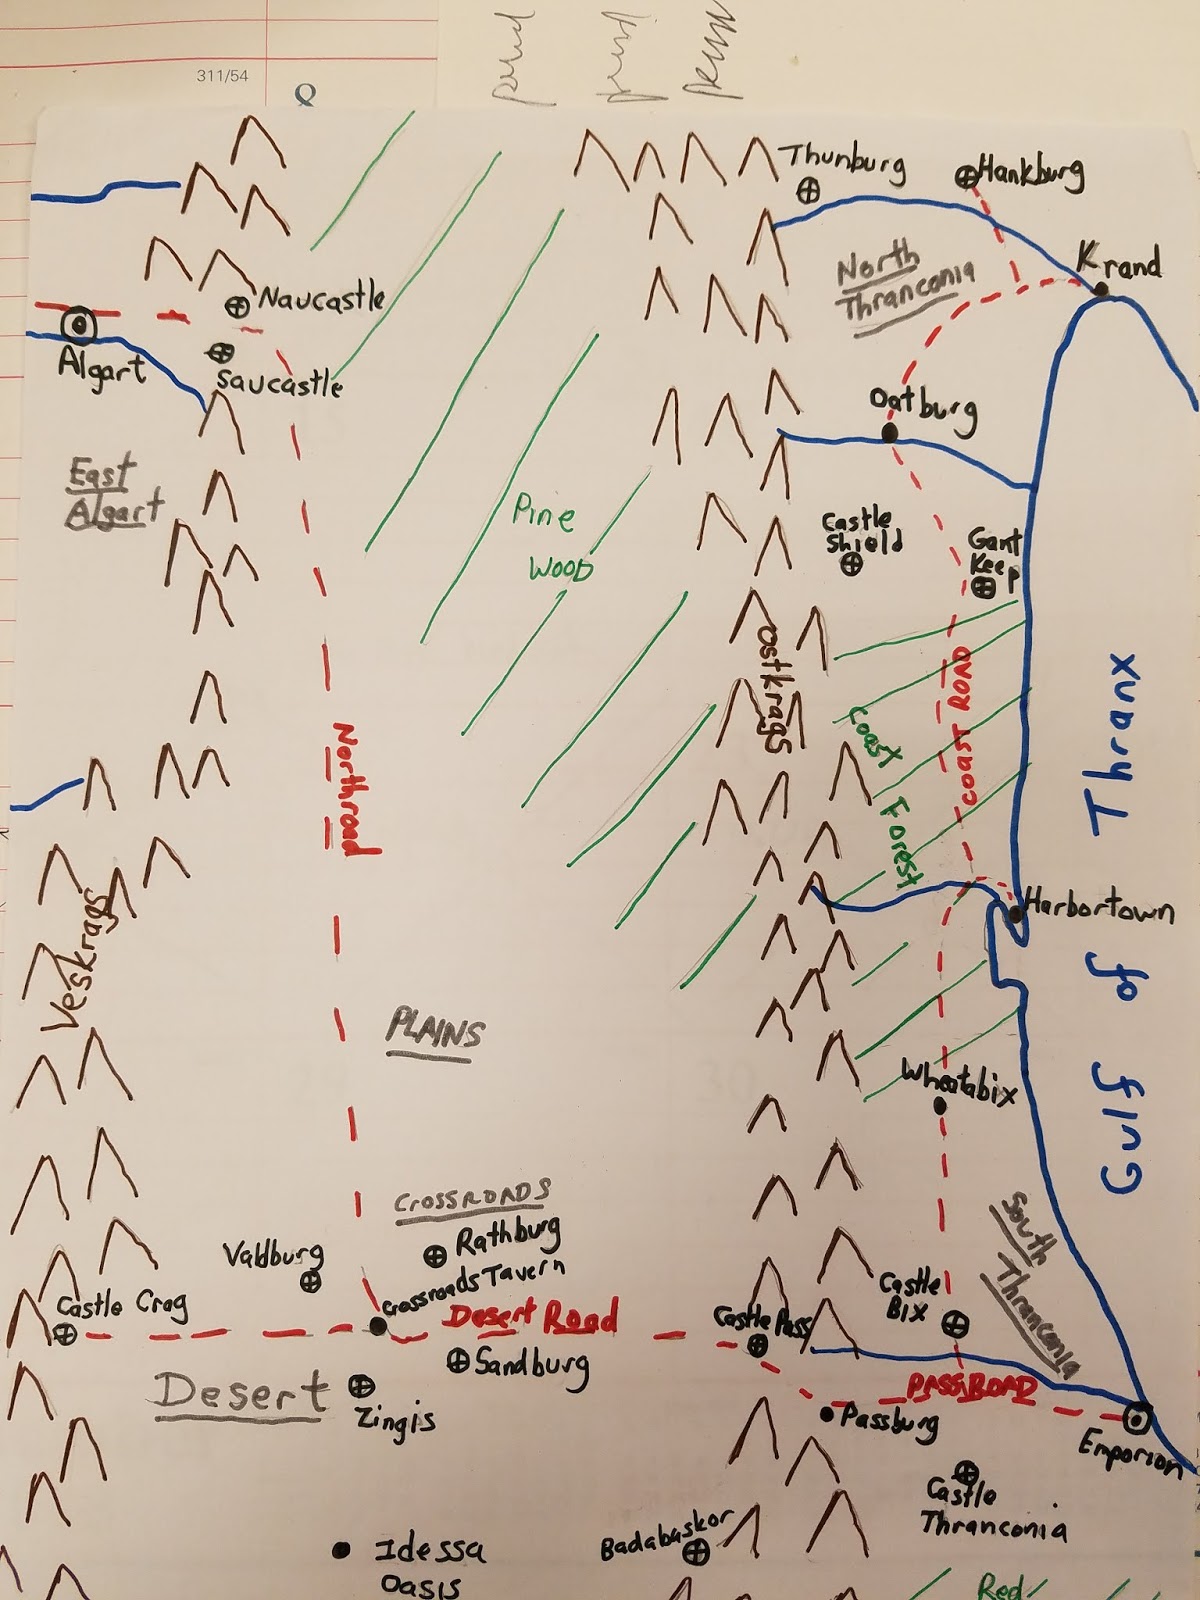 311/54
Thunburg
Hankburg
North
Thranconia
Krand
Naucastle
Algart
Saucastle
Oatburg
East
Algart
Pine
Wood
Castle
Shield
Gant
Keep
Ostkrags
Coast
Forest
COAST ROAD
Gulf of Thranx
Northroad
Veskrags
Harbortown
PLAINS
Wheatabix
South
Thranconia
CROSSROADS
Rathburg
Valdburg
Crossroads Tavern
Castle Crag
Desert Road
Castle Pass
Castle
Bix
Sandburg
Desert
Zingis
PASSROAD
Passburg
Emporion
Castle
Thranconia
Badabaskor
Idessa
Oasis
Red